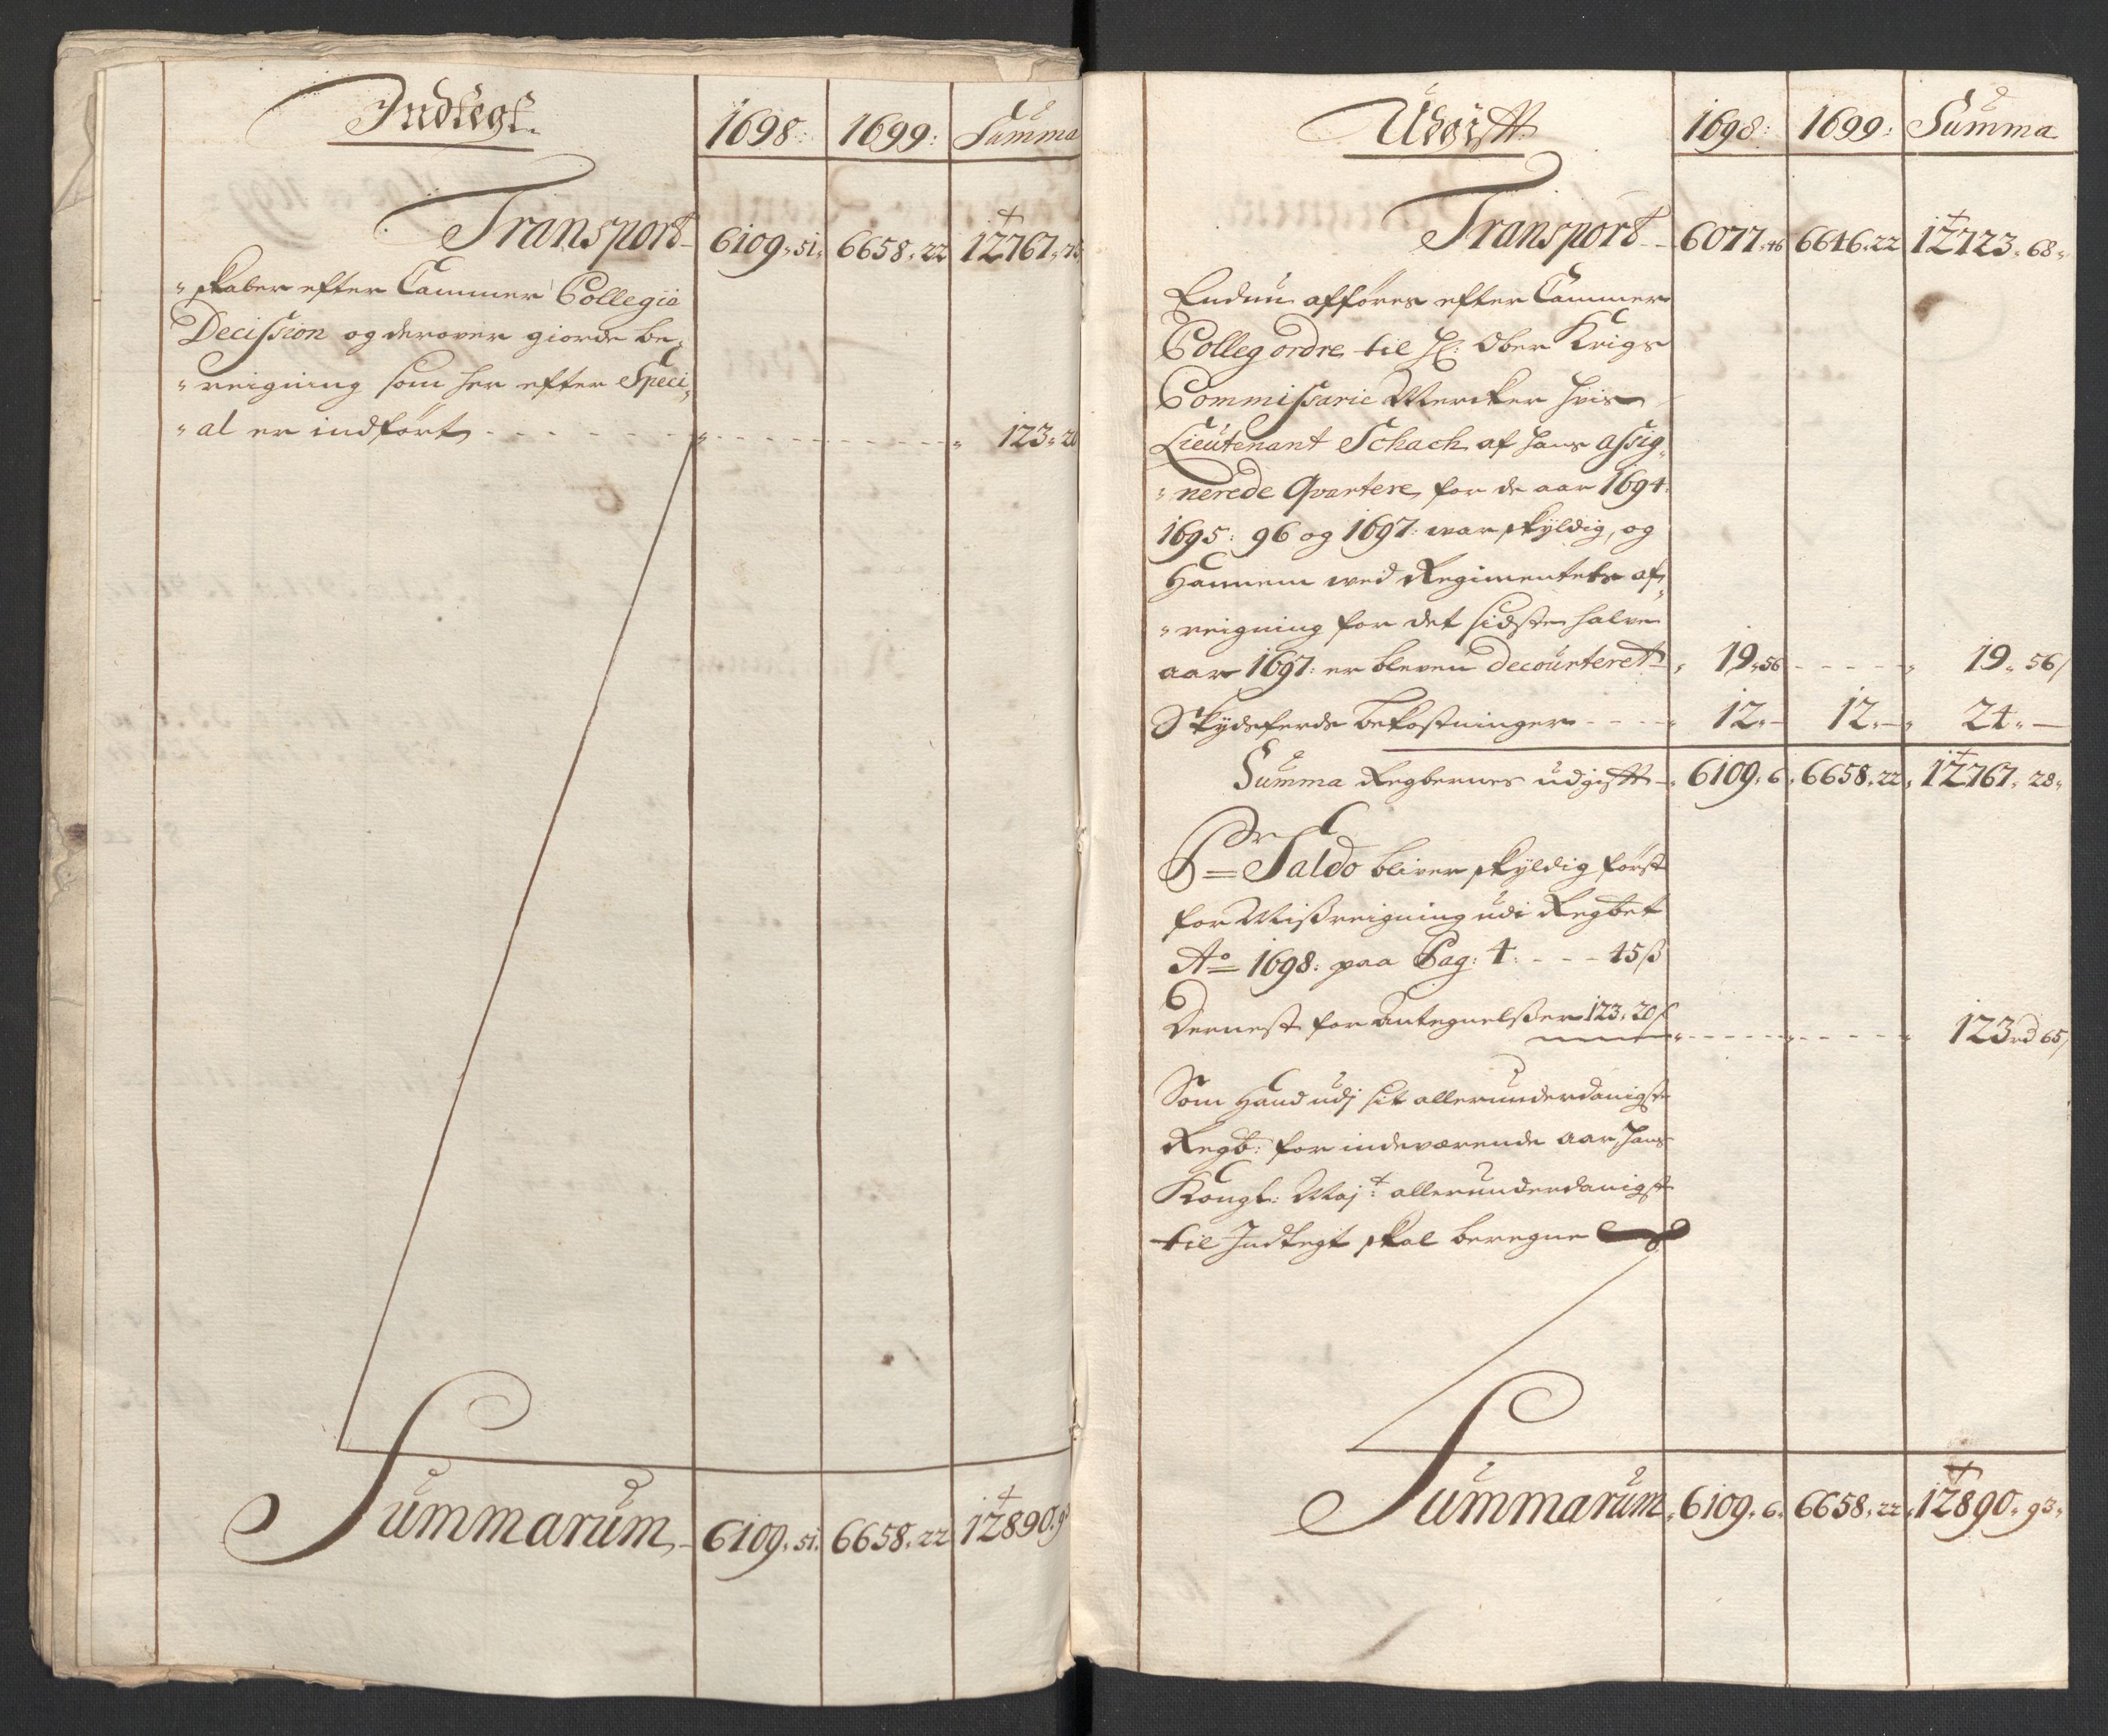 Indtegt.
1698: 1699: Summa
Transport 6109, 51, 6658, 22 12767, 73
skaber efter Cammer Collegie
Decission og derover giorde be,
reigning som her efter Speci,
al er indført - - - - - - - 123, 20
Summarum, 6109, 51. 6658, 22 12890, 93
Udgifft
1698: 1699: Summa
Transport 6077, 46 6646, 22 12723, 68,
Endnu afføres efter Cammer
Colleg ordre til H: Ober Krigs
Commissarie Mercker hvis
Lieutenant Schach af hans assig,
nerede Qvartere for de aar 1694.
1695: 96 og 1697: war skyldig, og
Hannem wed Regimentets af,
reigning for det sidste halve
aar 1697: er bleven decourteret 19, 56 - - - - - 19, 56/
Skydsferds bekostninger - - - - 12,- 12,- 24,-
Summa Regbernes udgifft 6109, 6, 6658, 22, 12767, 28,
Pr Saldo bliver skyldig først
for Misreigning udi Regbet
Ao 1698: paa Pag: 4: - - - 45 ß
Dernest for Antegnelsser 123, 20 ß - - - - - - - - - 123 rd 65/
Som Hand udj sit allerunderdanigste
Regb: for indeværende aar Hans
Kongl: Majt: allerunderdanigst
til Indtegt skal beregne
Summarum, 6109, 6, 6658, 22, 12890, 93,